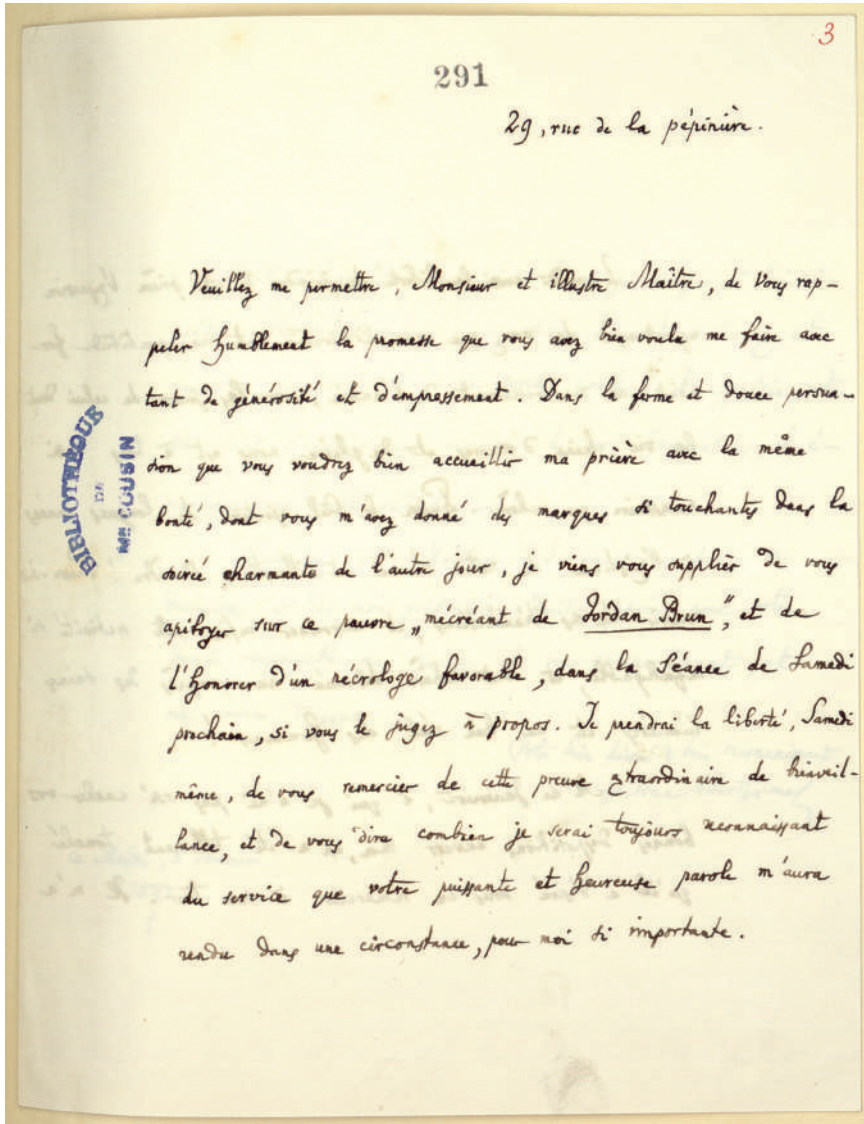 3
291
29, rue de la pépinière.
Veuillez me permettre, Monsieur et illustre Maître, de Vous rap-
peler humblement la promesse que vous avez bien voulu me faire avec
tant de générosité et d'empressement. Dans la ferme et douce persua-
sion que vous voudrez bien accueillir ma prière avec la même
bonté, dont vous m'avez donné des marques si touchantes dans la
soirée charmante de l'autre jour, je viens vous supplier de vous
apitoyer sur ce pauvre „mécréant de Jordan Brun", et de
l'honorer d'un nécrologe favorable, dans la Séance de Samedi
prochain, si vous le jugez à propos. Je prendrai la liberté, Samedi
même, de vous remercier de cette preuve extraordinaire de bienveil-
lance, et de vous dire combien je serai toujours reconnaissant
du service que votre puissante et heureuse parole m'aura
rendu dans une circonstance, pour moi si importante.
BIBLIOTHÈQUE
DE
MR COUSIN